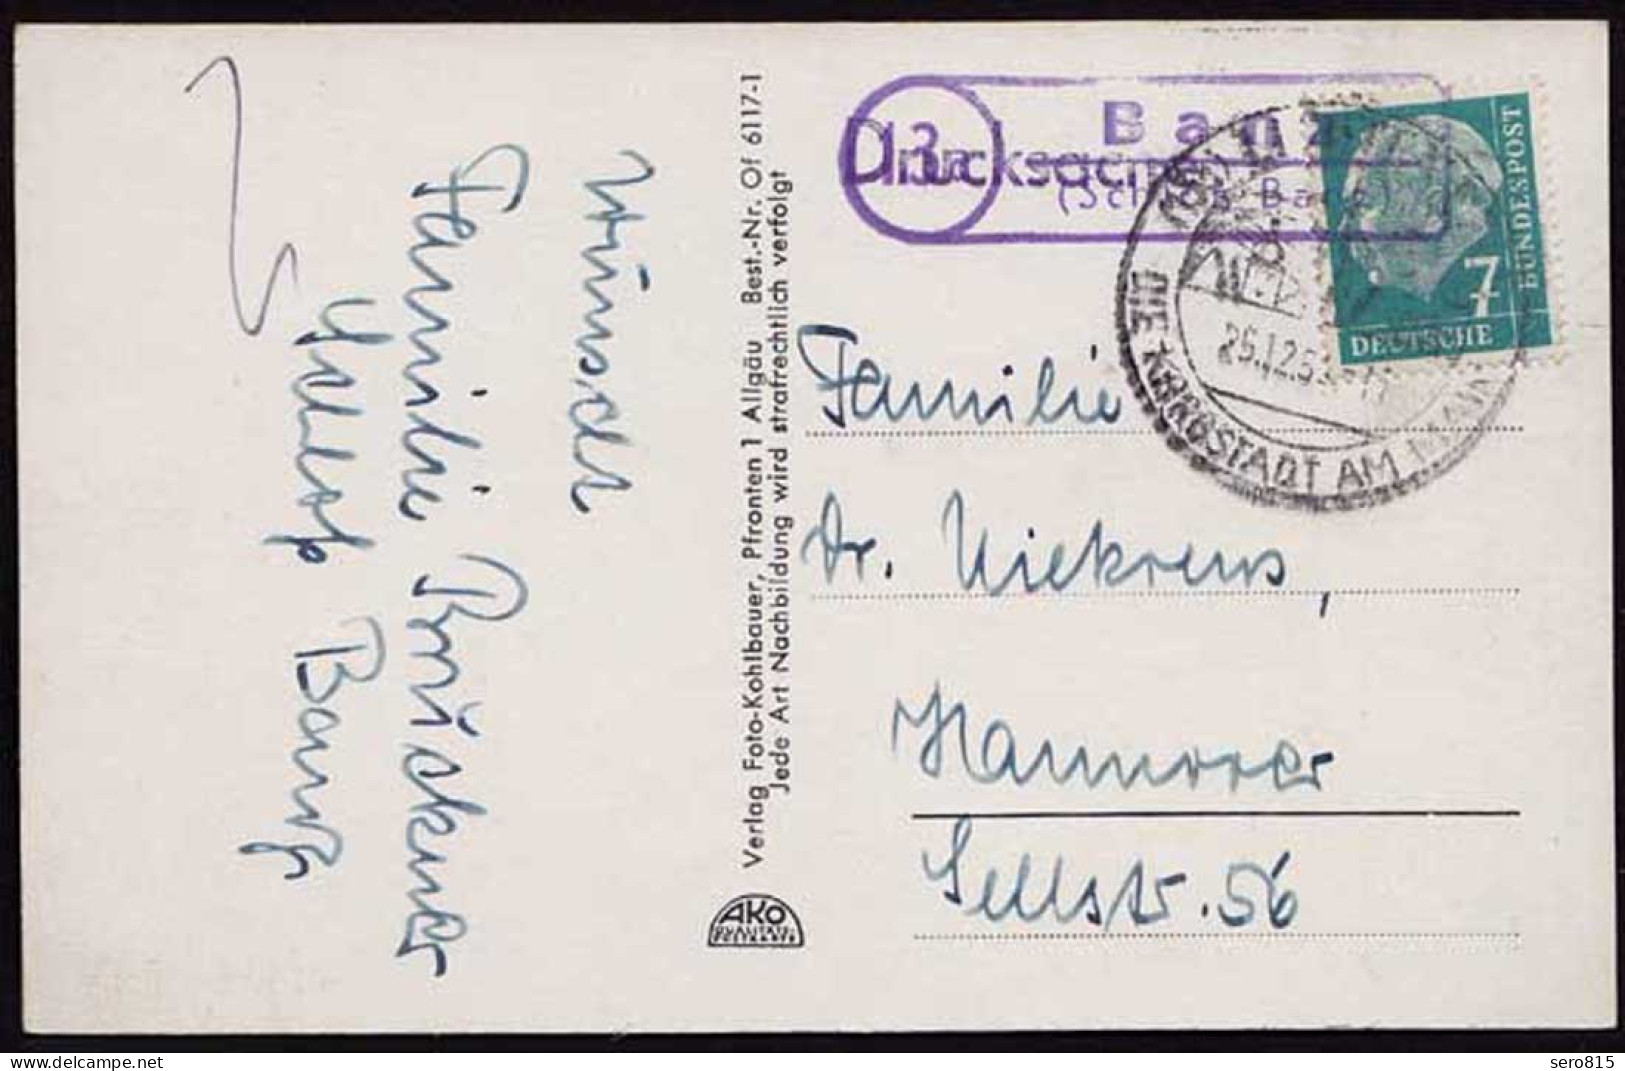 wünscht
Familie Brückner
Schloß Banz
Verlag Foto-Kohlbauer, Pfronten 1 Allgäu Best.-Nr. Of 6117-1
Jede Art Nachbildung wird strafrechtlich verfolgt
AKO
QUALITÄTS-
POSTKARTE
13a
Banz
Drucksache
(Schloß Banz)
7
DEUTSCHE
BUNDESPOST
DIE KORBSTADT AM MAIN
Familie
Dr. Niekrens,
Hannover
Sellstr. 56
sero815